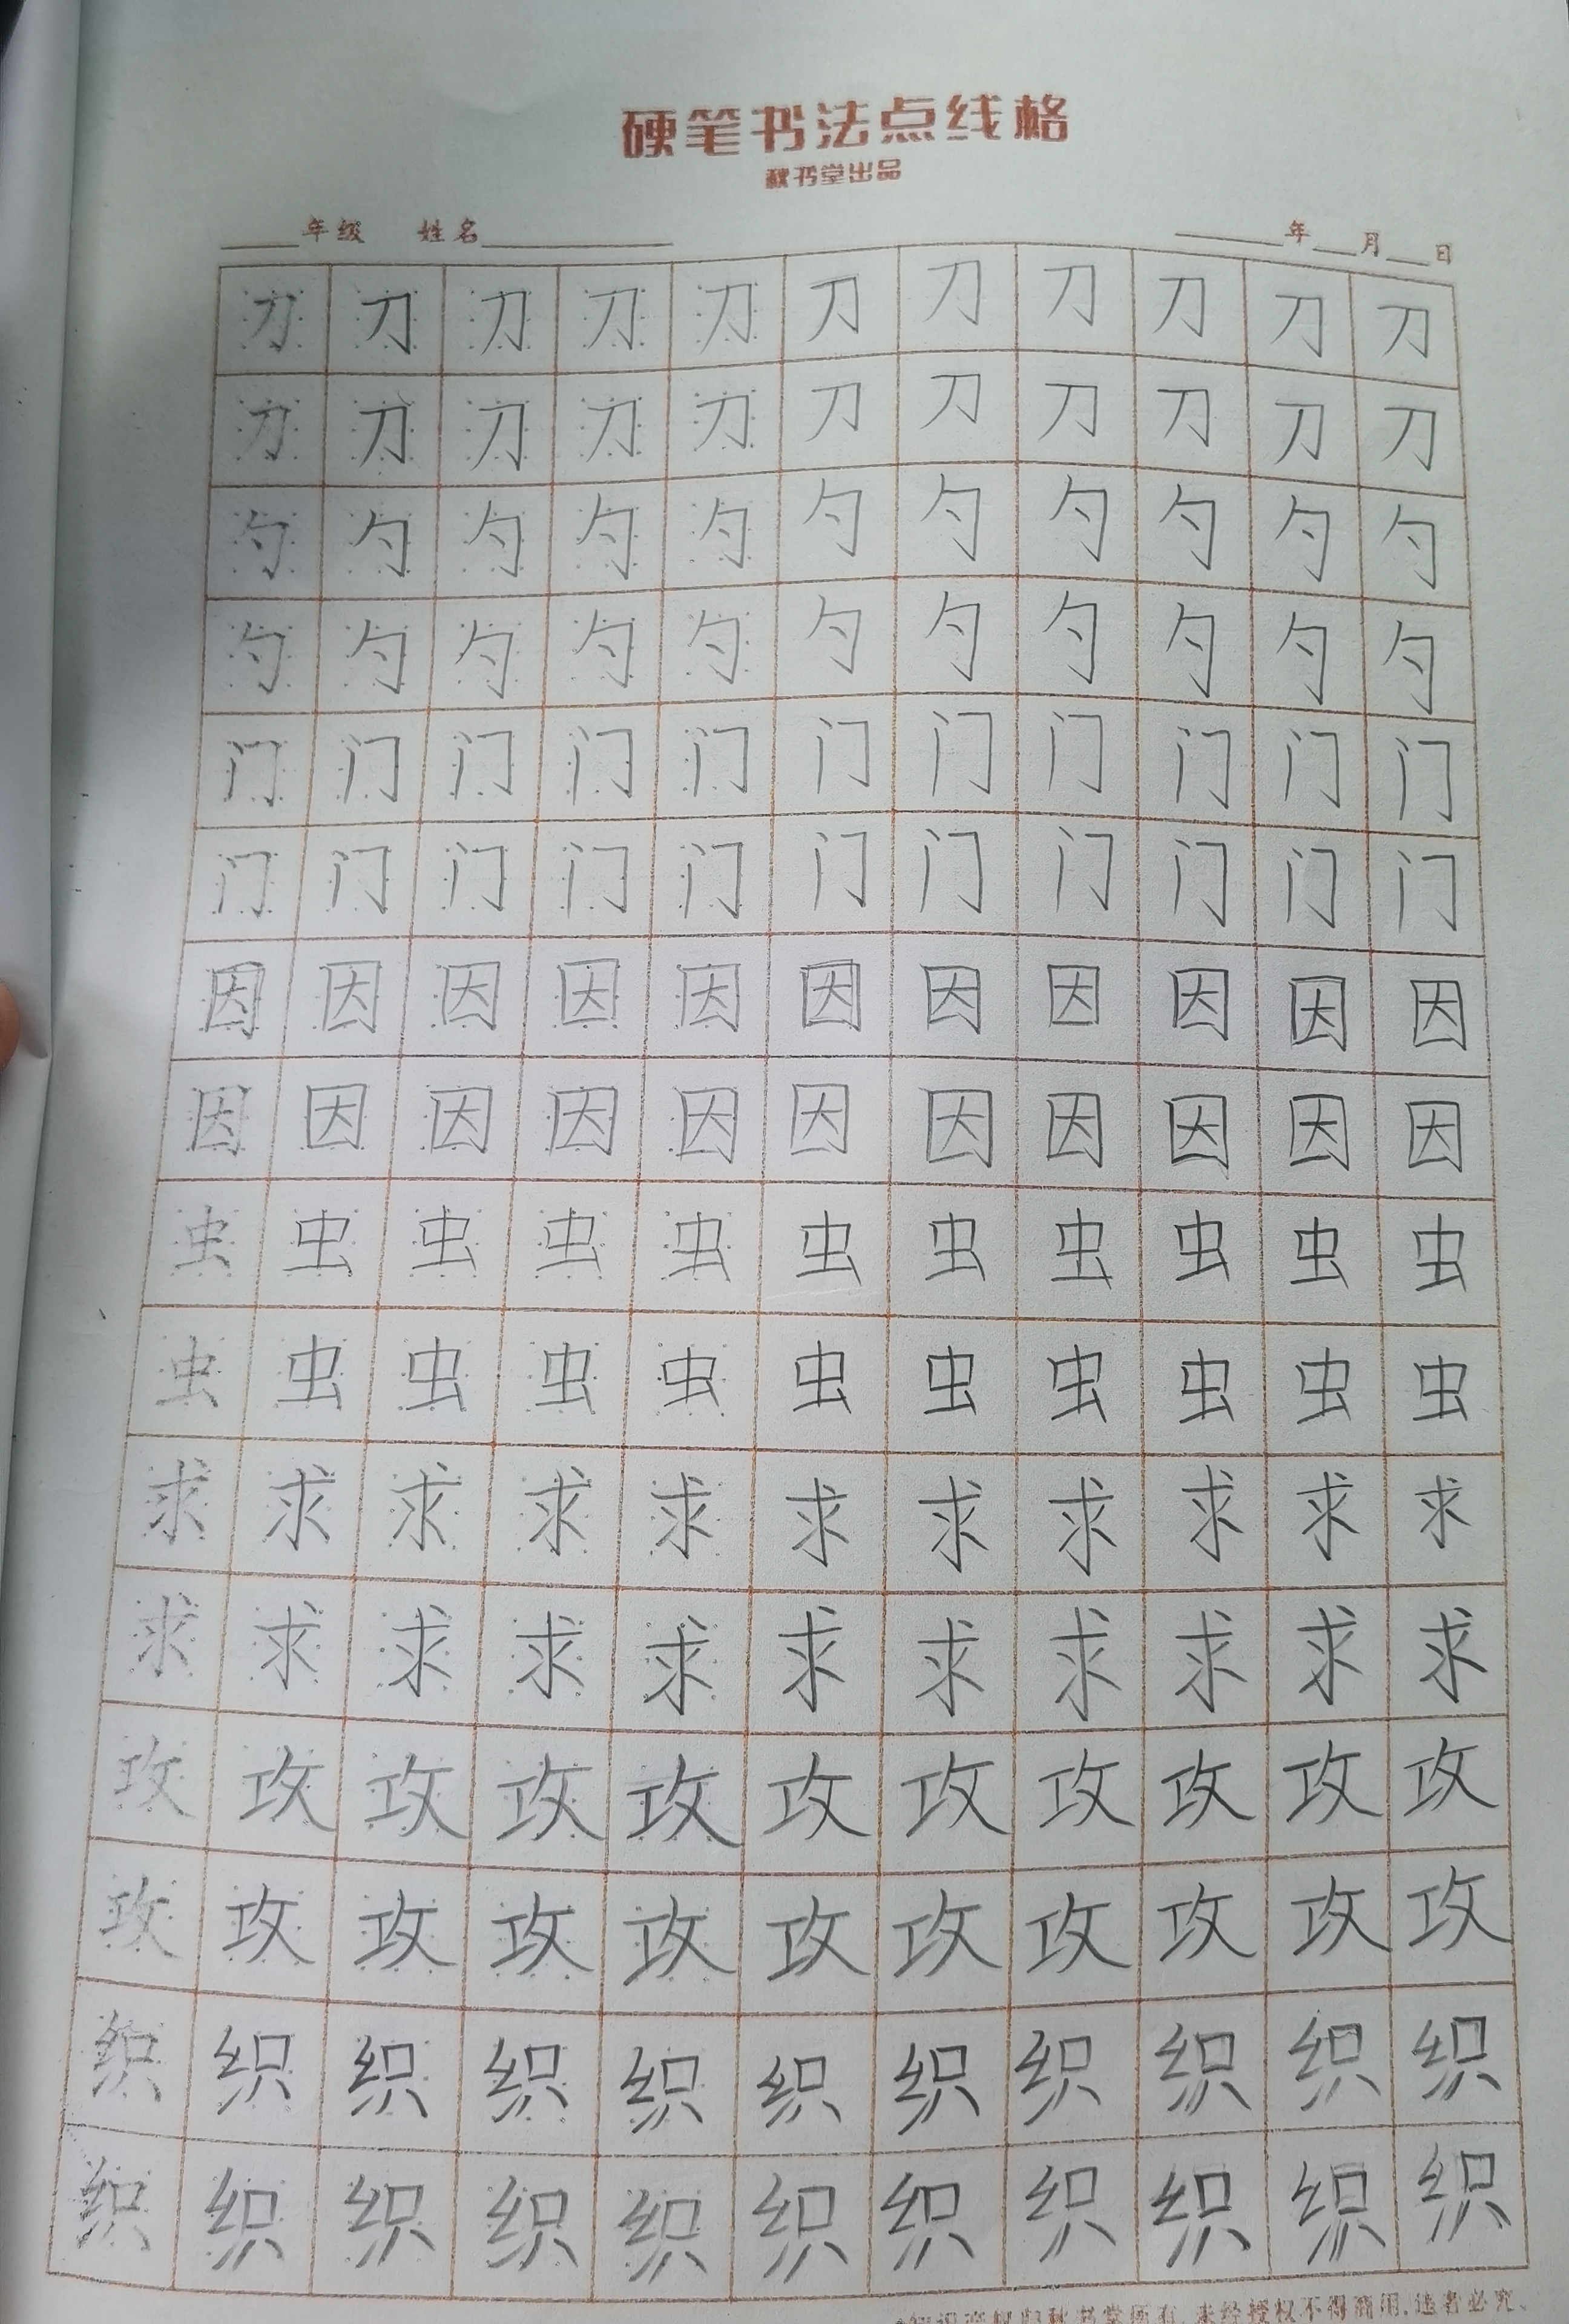 硬笔书法点线格
秋书堂出品
年级 姓名 年 月 日
刀 刀 刀 刀 刀 刀 刀 刀 刀 刀 刀
刀 刀 刀 刀 刀 刀 刀 刀 刀 刀 刀
勺 勺 勺 勺 勺 勺 勺 勺 勺 勺 勺
勺 勺 勺 勺 勺 勺 勺 勺 勺 勺 勺
门 门 门 门 门 门 门 门 门 门 门
门 门 门 门 门 门 门 门 门 门 门
因 因 因 因 因 因 因 因 因 因 因
因 因 因 因 因 因 因 因 因 因 因
虫 虫 虫 虫 虫 虫 虫 虫 虫 虫 虫
虫 虫 虫 虫 虫 虫 虫 虫 虫 虫 虫
求 求 求 求 求 求 求 求 求 求 求
求 求 求 求 求 求 求 求 求 求 求
攻 攻 攻 攻 攻 攻 攻 攻 攻 攻 攻
攻 攻 攻 攻 攻 攻 攻 攻 攻 攻 攻
织 织 织 织 织 织 织 织 织 织 织
织 织 织 织 织 织 织 织 织 织 织
知识产权归秋书堂所有,未经授权不得商用,违者必究。